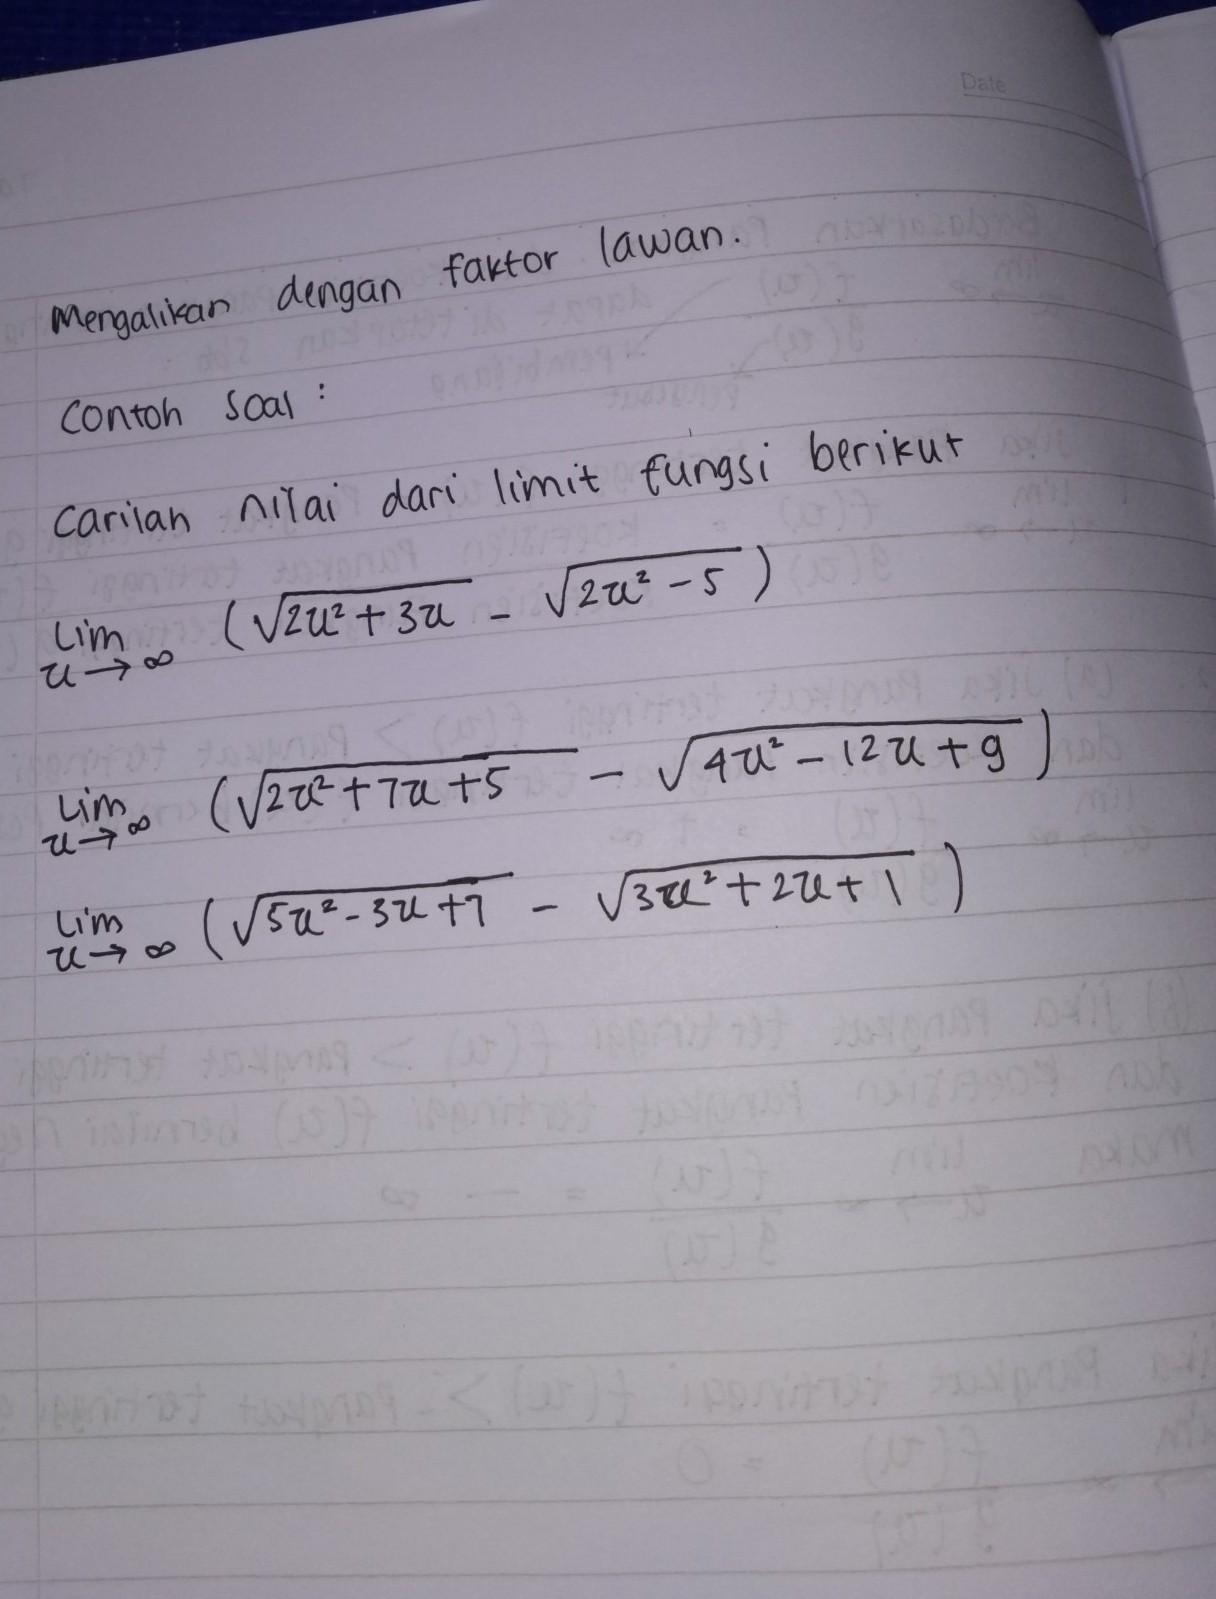 Date
Mengalikan dengan faktor lawan.
Contoh soal :
Carilan nilai dari limit fungsi berikut
lim x→∞ (√(2x² + 3x) - √(2x² - 5))
lim x→∞ (√(2x² + 7x + 5) - √(4x² - 12x + 9))
lim x→∞ (√(5x² - 3x + 7) - √(3x² + 2x + 1))